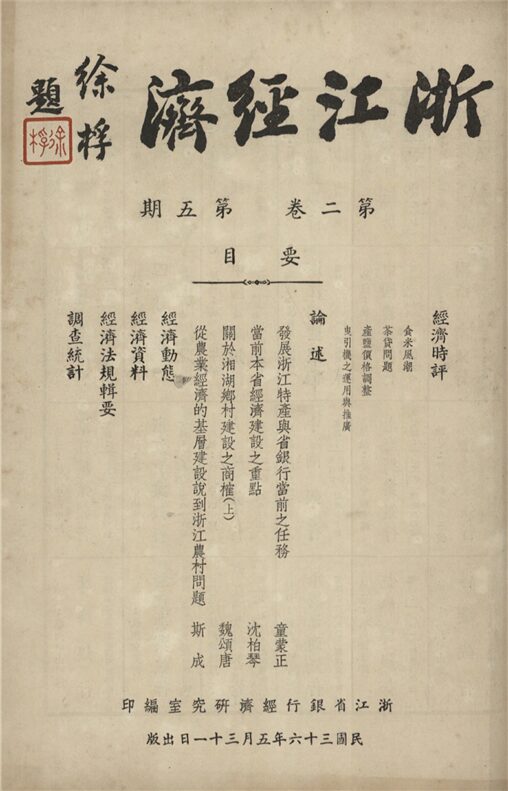 浙江經濟
徐桴
題
徐桴
第二卷 第五期
要目
經濟時評
食米風潮
茶貸問題
產鹽價格調整
曳引機之運用與推廣
論述
發展浙江特產與省銀行當前之任務 童蒙正
當前本省經濟建設之重點 沈柏琴
關於湘湖鄉村建設之商榷(上) 魏頌唐
從農業經濟的基層建設說到浙江農村問題 斯成
經濟動態
經濟資料
經濟法規輯要
調查統計
浙江省銀行經濟研究室編印
民國三十六年五月三十一日出版